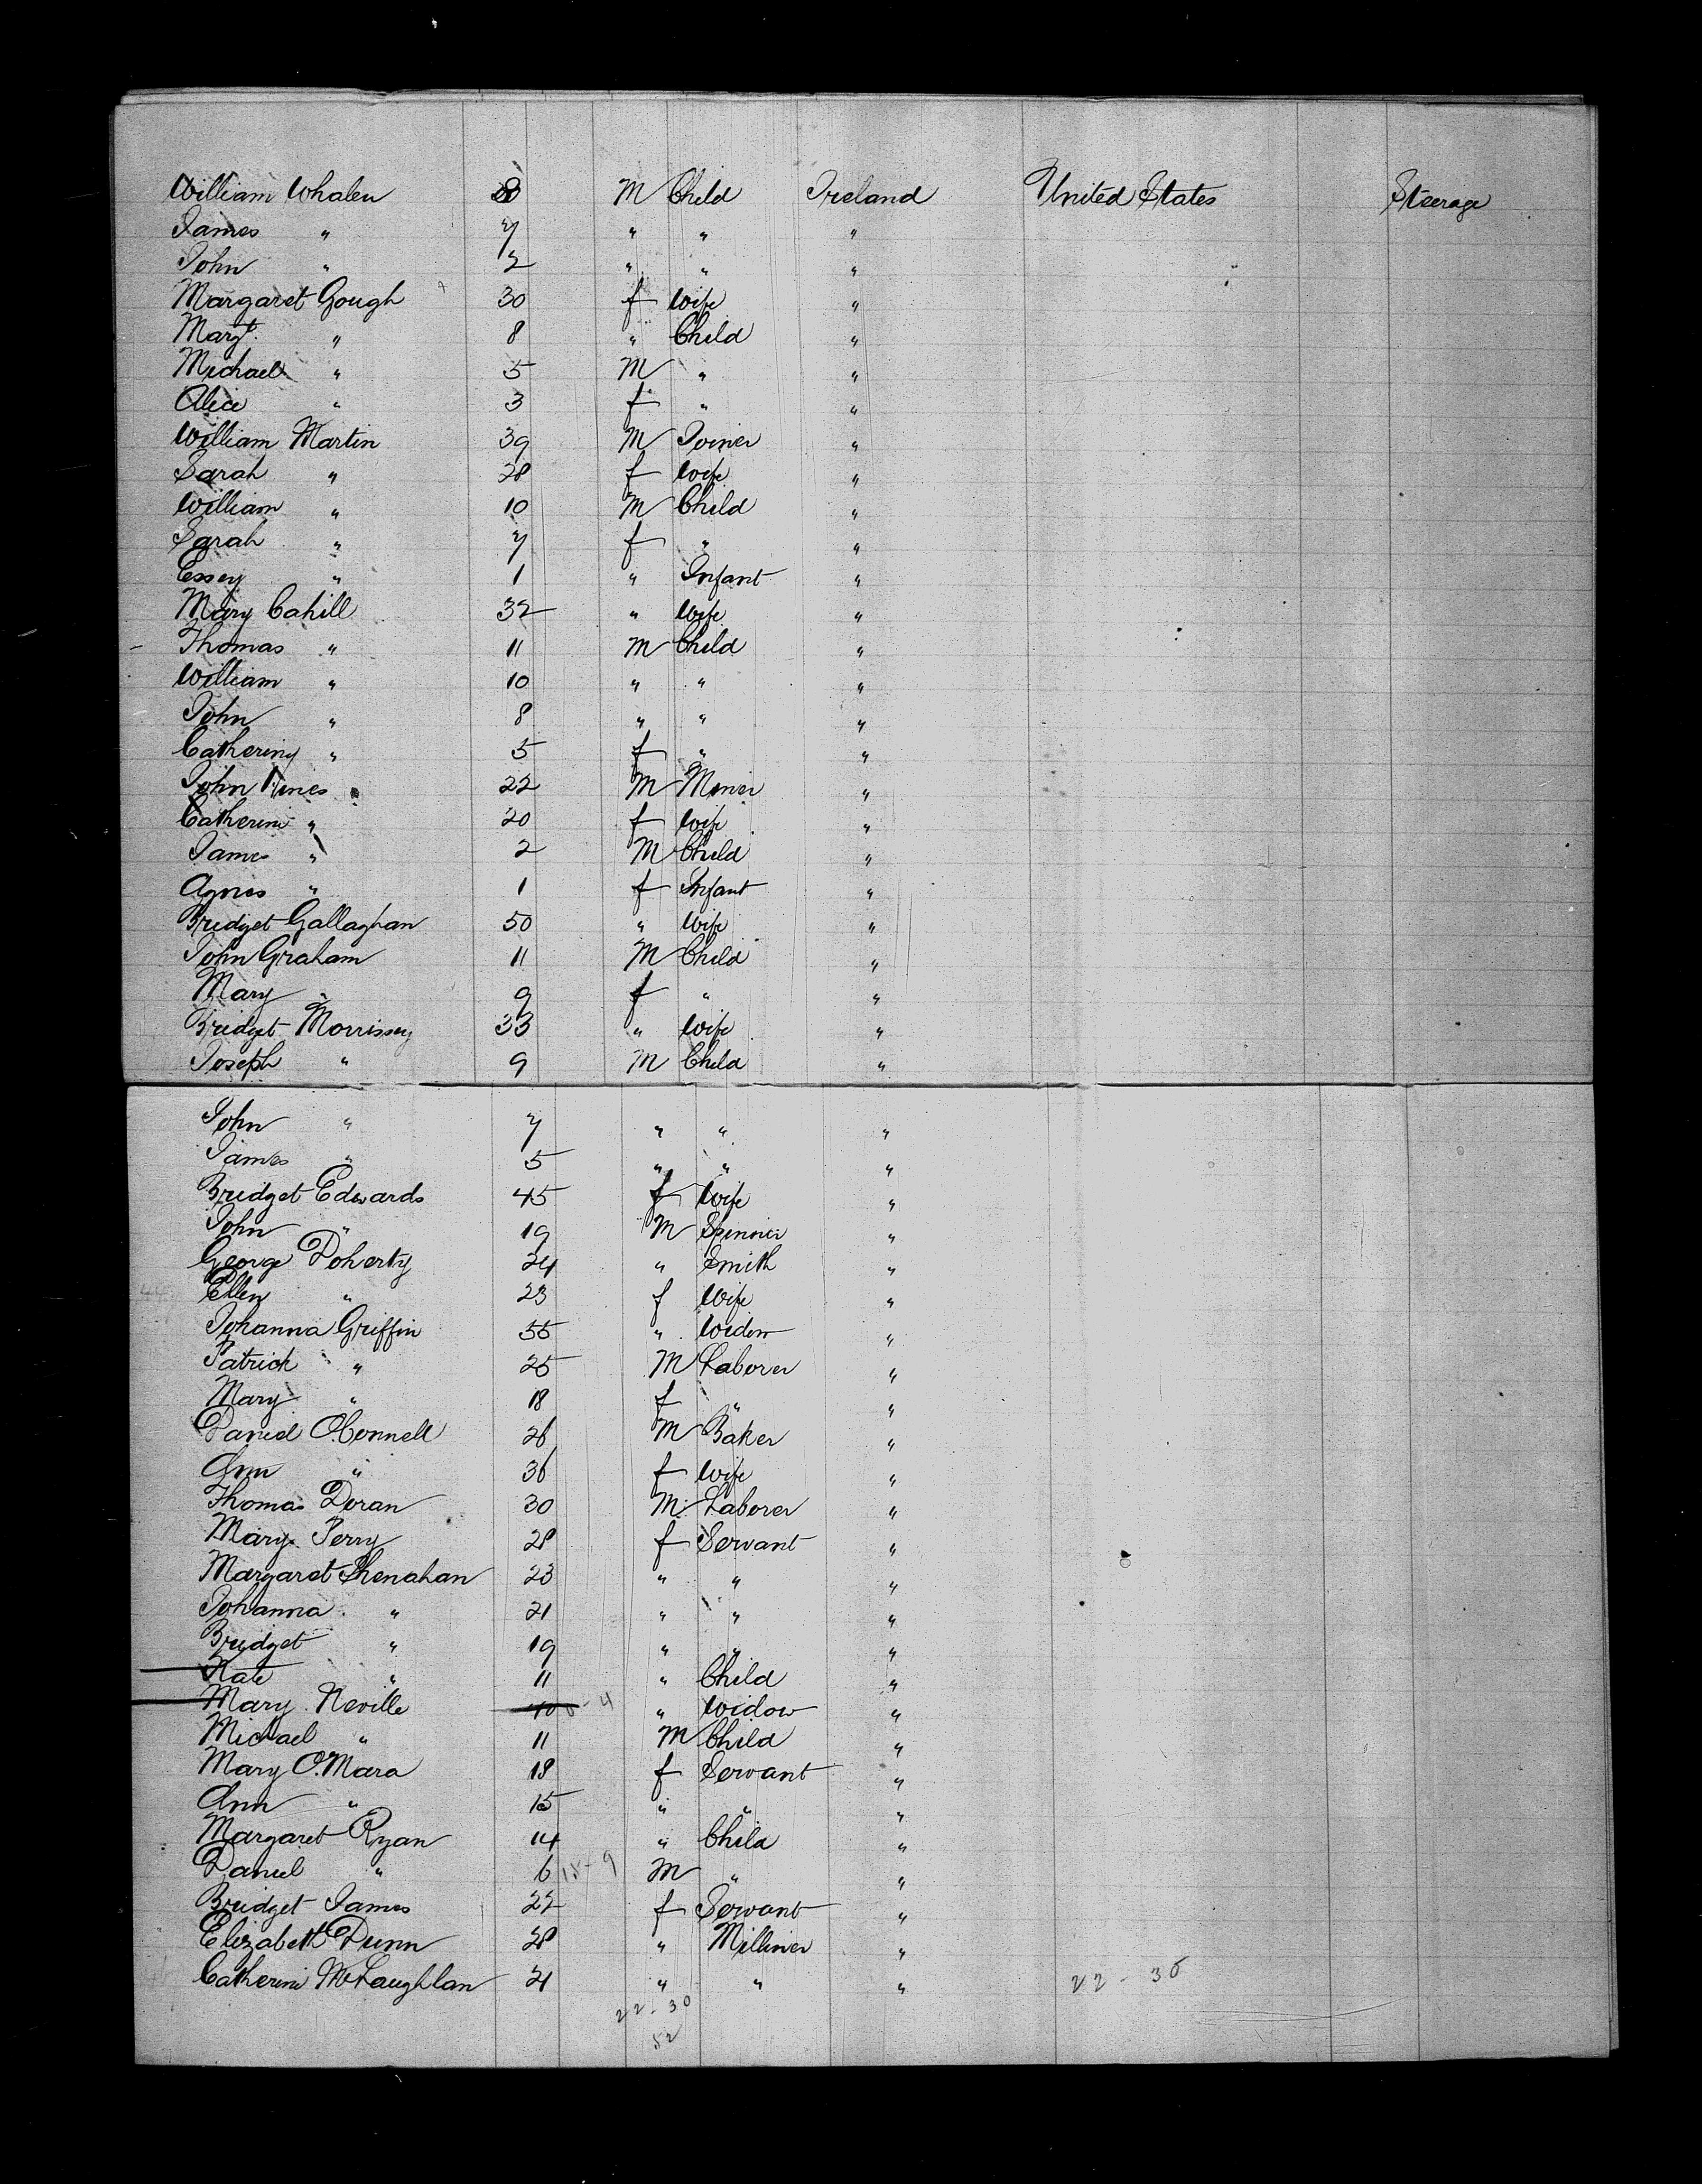 William Whalen 8 M Child Ireland United States Steerage
James " 7 " " "
John " 2 " " "
Margaret Gough 30 f Wife "
Margt. " 8 " Child "
Michael " 5 M " "
Alice " 3 f " "
William Martin 39 M Joiner "
Sarah " 28 f Wife "
William " 10 M Child "
Sarah " 7 f " "
Essey " 1 " Infant "
Mary Cahill 32 " Wife "
Thomas " 11 M Child "
William " 10 " " "
John " 8 " " "
Catherine " 5 f " "
John Hines 22 M Miner "
Catherine " 20 f Wife "
James " 2 M Child "
Agnes " 1 f Infant "
Bridget Gallaghan 50 " Wife "
John Graham 11 M Child "
Mary " 9 f " "
Bridget Morrissey 33 " Wife "
Joseph " 9 M Child "
John " 7 " " "
James " 5 " " "
Bridget Edwards 45 f Wife "
John " 19 M Spinner "
George Doherty 24 " Smith "
Ellen " 23 f Wife "
Johanna Griffin 55 " Widow "
Patrick " 25 M Laborer "
Mary " 18 f " "
Daniel O'Connell 26 M Baker "
Ann " 36 f Wife "
Thomas Doran 30 M Laborer "
Mary Perry 28 f Servant "
Margaret Shenahan 23 " " "
Johanna " 21 " " "
Bridget " 19 " " "
Kate " 11 " Child "
Mary Neville 40 " Widow "
Michael " 11 M Child "
Mary O'Mara 18 f Servant "
Ann " 15 " " "
Margaret Ryan 14 " Child "
Daniel " 6 15-9 M " "
Bridget James 22 f Servant "
Elizabeth Dunn 28 " Milliner "
Catherine McLaughlan 21 " " " 22-30
22-30
52